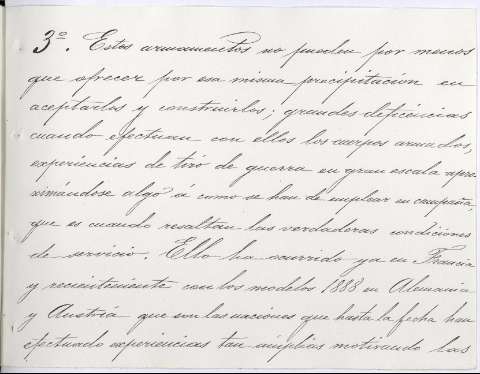 3º. Estos armamentos no pueden por menos
que ofrecer por esa misma precipitación en
aceptarlos y construirlos; grandes deficencias
cuando efectuan con ellos los cuerpos armados,
experiencias de tiro de guerra en gran escala apro
ximándose algo á como se han de emplear en campaña,
que es cuando resaltan las verdaderas condiciones
de servicio. Ello ha ocurrido ya en Francia
y recientemente con los modelos 1888 en Alemania
y Austria que son las naciones que hasta la fecha han
efectuado experiencias tan amplias motivando las